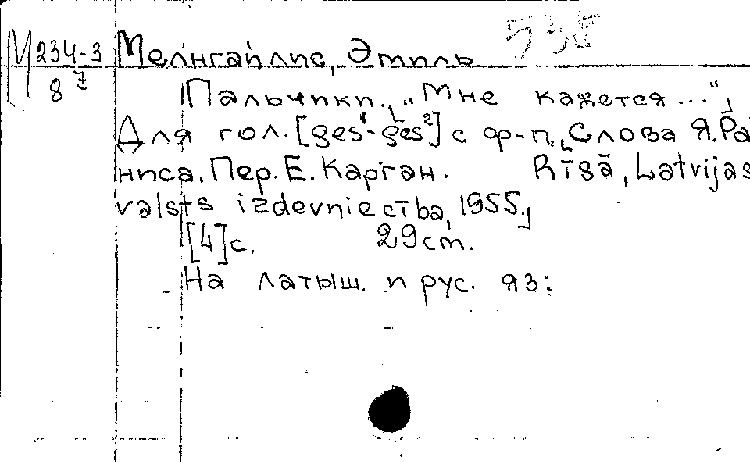 М 234-3 Мелнгайлис, Эмиль
8
Пальчики. „Мне кажется..."
Для гол. [ges¹-ges²] с ф-п. Слова Я. Ра
йниса. Пер. Е. Карган. Rīgā, Latvijas
valsts izdevniecība, 1955.
[4] с. 29 cm.
На латыш. и рус. яз: